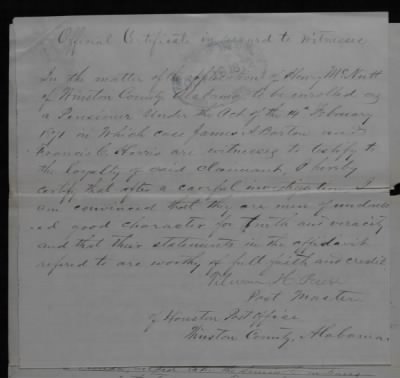 Official Certificate in regard to Witnesses
In the matter of the application of Henry McNutt
of Winston County Alabama to be enrolled as
a Pensioner Under the Act of the 14th February
1871 in Which case James A Barton and
Francis C. Harris are witnesses to testify to
the loyalty of said claimant, I hereby
certify that after a careful investigation I
am convinced that they are men of undoubt
ed good character for truth and veracity
and that their statements in the affidavit
refered to are worthy of full faith and credit
H.
Post Master
of Houston Post Office
Winston County, Alabama